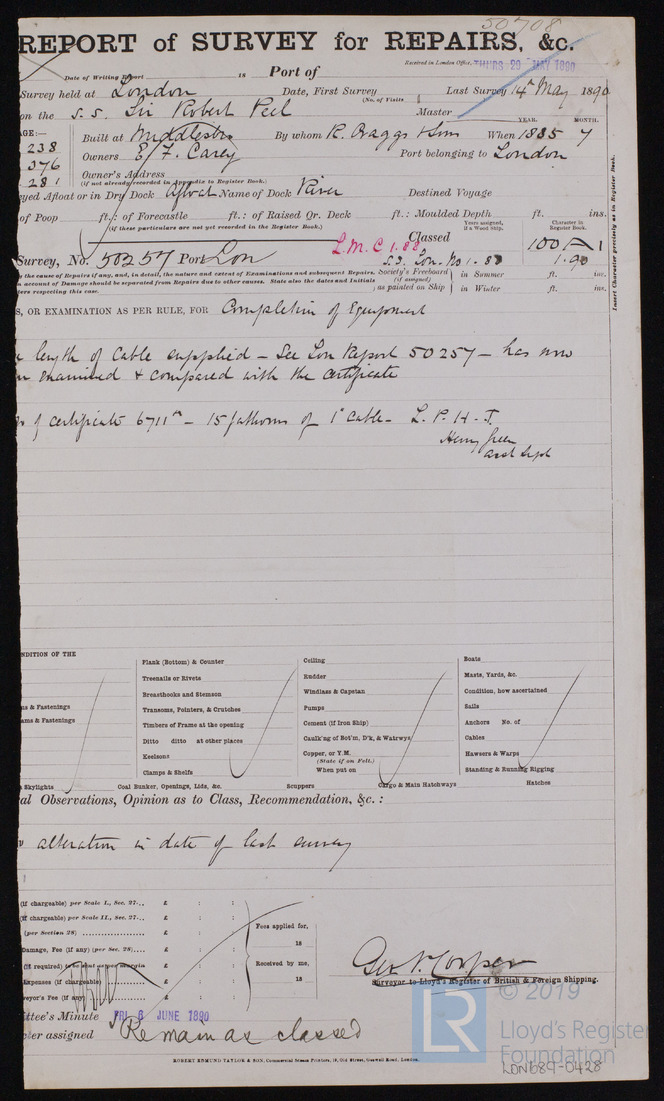 50708
REPORT of SURVEY for REPAIRS, &c.
Received in London Office, THURS 29 MAY 1890
Date of Writing Report 18 Port of
Survey held at London Date, First Survey Last Survey 14th May 1890
(No. of Visits
on the S.S. Sir Robert Peel Master
YEAR. MONTH.
AGE:—
238 Built at Middlesbro By whom R. Craggs & Sons When 1885 7
376 Owners E. T. Carey Port belonging to London
281 Owner's Address
(If not already recorded in Appendix to Register Book.)
yed Afloat or in Dry Dock Afloat Name of Dock River Destined Voyage
of Poop ft.: of Forecastle ft.: of Raised Qr. Deck ft.: Moulded Depth ft. ins.
(If these particulars are not yet recorded in the Register Book.)
Years assigned, if a Wood Ship.
Character in Register Book.
L.M.C 1.88 Classed 100 A 1
Survey, No. 50257 Port Lon S.S. Lon. No 1. 1.90
y the cause of Repairs if any, and, in detail, the nature and extent of Examinations and subsequent Repairs.
n account of Damage should be separated from Repairs due to other causes. State also the dates and Initials
ters respecting this case.
Society's Freeboard (if assigned) as painted on Ship
in Summer ft. ins.
in Winter ft. ins.
Insert Character precisely as in Register Book.
S, OR EXAMINATION AS PER RULE, FOR Completion of Equipment
length of Cable supplied – See Lon Report 50257 – has now
n examined & compared with the certificate
of certificate 6711 – 15 fathoms of 1" cable – L. P. H. T.
Henry Green
asst Supt
NDITION OF THE
ms & Fastenings
ams & Fastenings
Skylights
Plank (Bottom) & Counter
Treenails or Rivets
Breasthooks and Stemson
Transoms, Pointers, & Crutches
Timbers of Frame at the opening
Ditto ditto at other places
Keelsons
Clamps & Shelfs
Coal Bunker, Openings, Lids, &c.
Ceiling
Rudder
Windlass & Capstan
Pumps
Cement (if Iron Ship)
Caulk'ng of Bot'm, D'k, & Watrwys
Copper, or Y.M.
(State if on Felt.)
When put on
Scuppers
Cargo & Main Hatchways
Boats
Masts, Yards, &c.
Condition, how ascertained
Sails
Anchors No. of
Cables
Hawsers & Warps
Standing & Running Rigging
Hatches
al Observations, Opinion as to Class, Recommendation, &c.:
alteration in date of last survey
(if chargeable) per Scale I., Sec. 27... £ : :
(if chargeable) per Scale II., Sec. 27... £ : :
(per Section 28) £ : :
Damage, Fee (if any) (per Sec. 28) £ : :
(if required) to be sent as per margin £ : :
Expenses (if chargeable) £ : :
veyor's Fee (if any) £ : :
Fees applied for,
18
Received by me,
18
Geo. N. Cooper
Surveyor to Lloyd's Register of British & Foreign Shipping.
ttee's Minute FRI 6 JUNE 1890
cter assigned Remain as classed
ROBERT EDMUND TAYLOR & SON, Commercial Steam Printers, 19, Old Street, Goswell Road, London.
© 2019
LR
Lloyd's Register
Foundation
LON689-0428